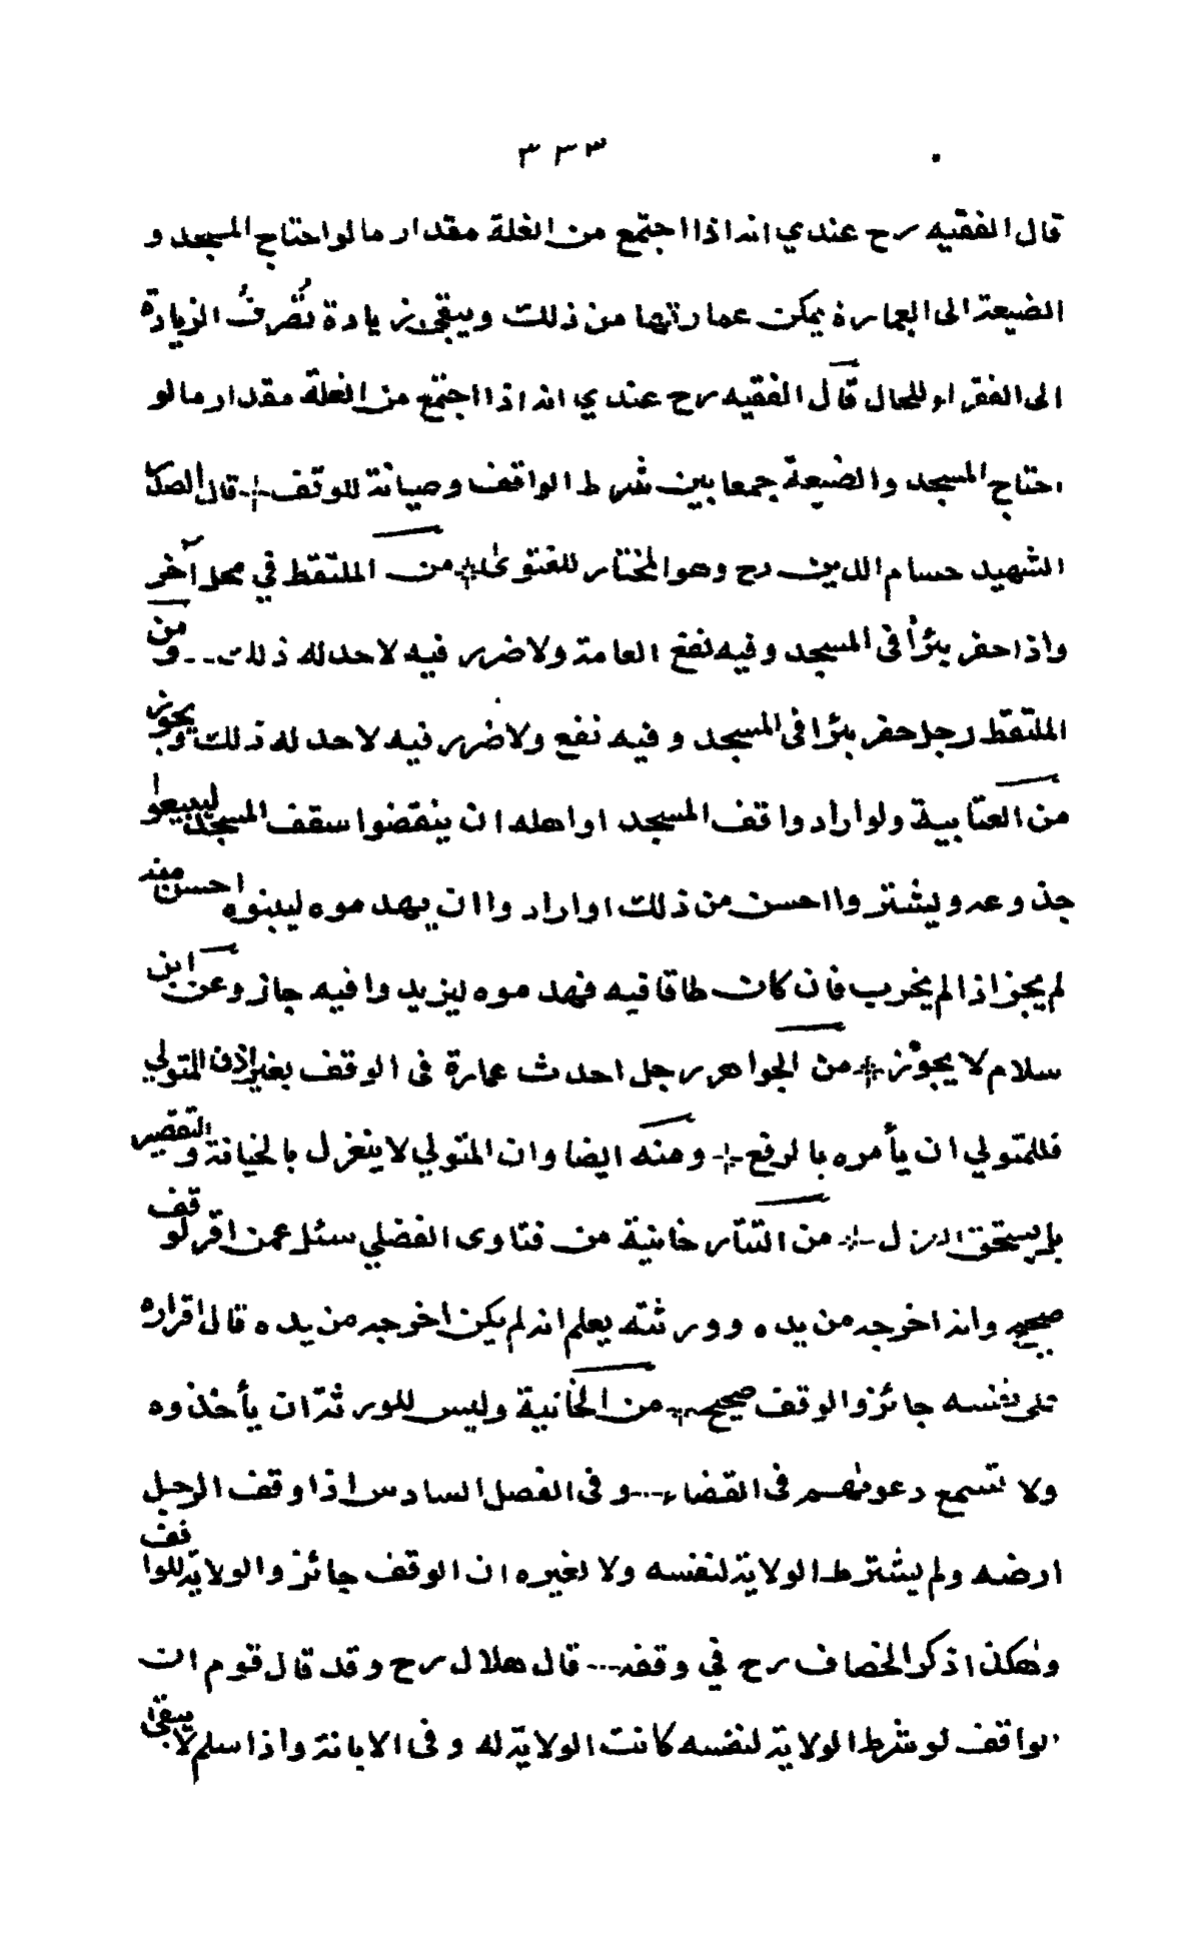 ٣٣٣
قال الفقيه رح عندي انه اذا اجتمع من الغلة مقدار ما لو احتاج المسجد و
الضيعة الى العمارة يمكن عمارتها من ذلك ويبقى زيادة تُصرفُ الزيادة
الى الفقراء للحال قال الفقيه رح عندي انه اذا اجتمع من الغلة مقدار ما لو
احتاج المسجد والضيعة جمعا بين شرط الواقف وصيانة للوقف قال الصدر
الشهيد حسام الدين رح وهو المختار للفتوى من الملتقط في محل آخر
واذا حفر بئرا فى المسجد وفيه نفع العامة ولا ضرر فيه لاحد له ذلك ومن
الملتقط رجل حفر بئرا فى المسجد و فيه نفع ولا ضرر فيه لاحد له ذلك ويجوز
من العتابية ولو اراد واقف المسجد او اهله ان ينقضوا سقف المسجد ليبيعوا
جذوعه ويشتروا احسن من ذلك او ارادوا ان يهدموه ليبنوه احسن منه
لم يجز اذا لم يخرب فان كان طاقا فيه فهدموه ليزيدوا فيه جاز وعن ابن
سلام لا يجوز من الجواهر رجل احدث عمارة فى الوقف بغير اذن المتولي
فللمتولي ان يأمره بالرفع ومنه ايضا وان المتولي لا ينعزل بالخيانة والتقصير
بل يستحق العزل من التتارخانية من فتاوى الفضلي سئل عمن اقر لوقف
صحيح وانه اخرجه من يده وورثته يعلم انه لم يكن اخرجه من يده قال اقراره
على نفسه جائز والوقف صحيح من الخانية وليس للورثة ان يأخذوه
ولا تسمع دعوٰهم فى القضاء وفى الفصل السادس اذا وقف الرجل
ارضه ولم يشترط الولاية لنفسه ولا لغيره ان الوقف جائز والولاية للواقف
وهٰكذا ذكر الخصاف رح في وقفه قال هلال رح وقد قال قوم ان
الواقف لو شرط الولاية لنفسه كانت الولاية له وفى الابانة واذا سلم لا يبقى